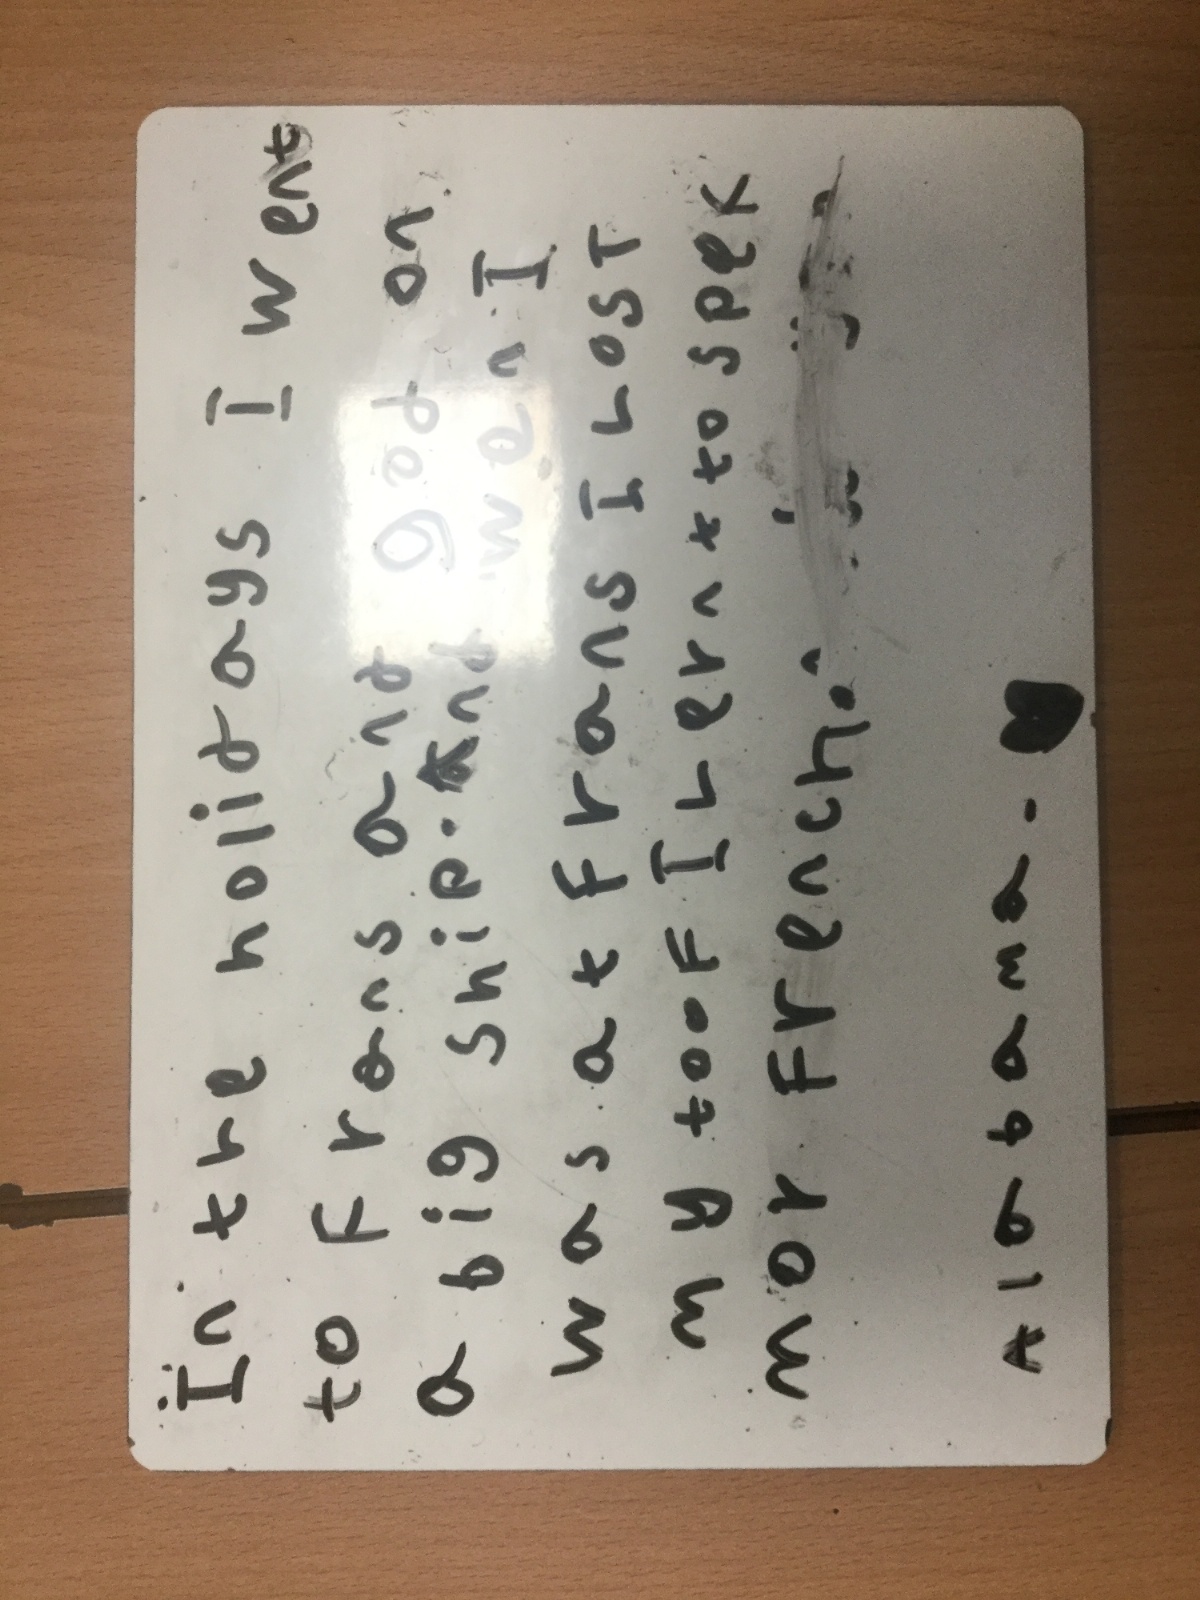 In the holidays I went
to Frans and got on
a big ship. And wen I
was at Frans I LOST
my tooF I Lern to spek
mor French.
Alabama.